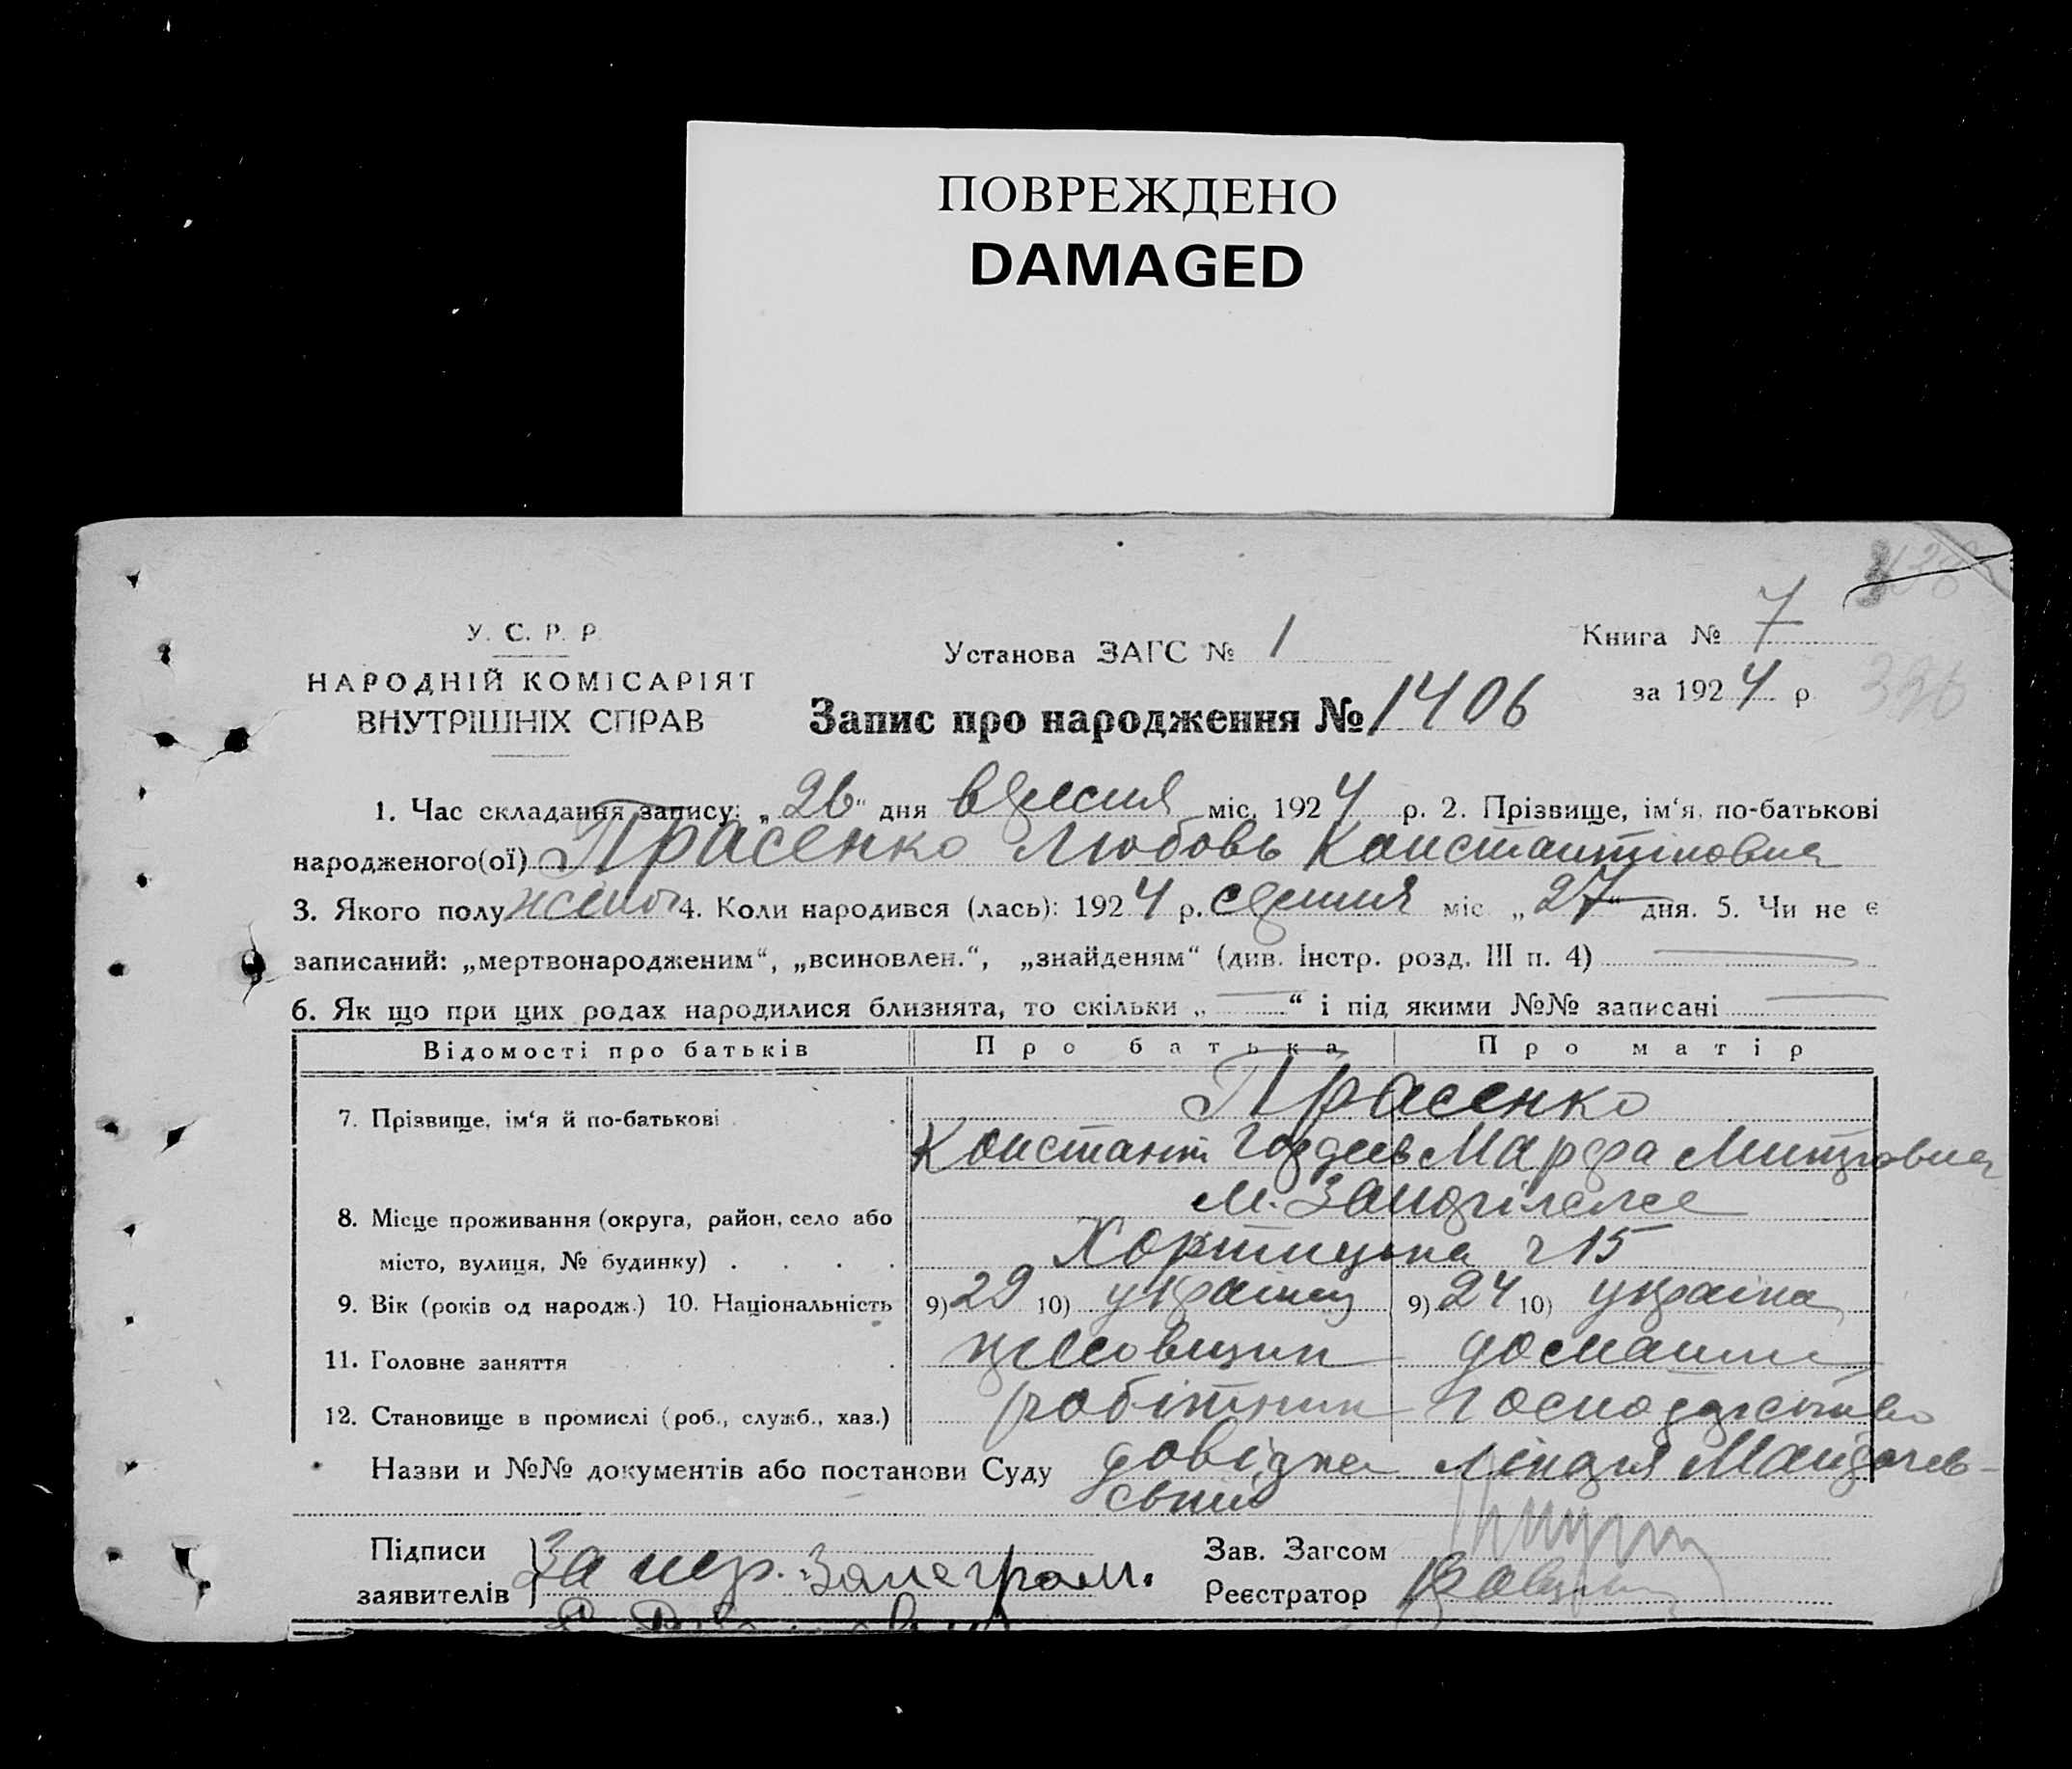 ПОВРЕЖДЕНО
DAMAGED
У. С. Р. Р.
НАРОДНІЙ КОМІСАРІЯТ
ВНУТРІШНІХ СПРАВ
Установа ЗАГС № 1
Книга № 7
за 1924 р
396
Запис про народження № 1406
1. Час складання запису: „26“ дня вересня міс. 1924 р. 2. Прізвище, ім‘я, по-батькові
народженого(ої) Прасенко Любовь Константіновна
3. Якого полу жіноч 4. Коли народився (лась): 1924 р. серпня міс „27“ дня. 5. Чи не є
записаний: „мертвонародженим“, „всиновлен.“, „знайденям“ (див. інстр. розд. III п. 4)
6. Як що при цих родах народилися близнята, то скільки „ “ і під якими №№ записані
Відомості про батьків Про батька Про матір
7. Прізвище, ім‘я й по-батькові Прасенко
Констант Гордеев Марфа
8. Місце проживання (округа, район, село або м.
місто, вулиця, № будинку) Хортицька 15
9. Вік (років од народж.) 10. Національність 9) 29 10) українец 9) 24 10) україна
11. Головне заняття домашне
12. Становище в промислі (роб., служб., хаз.) робітник господарство
Назви и №№ документів або постанови Суду довідка
Підписи
заявителів За
Зав. Загсом
Реєстратор